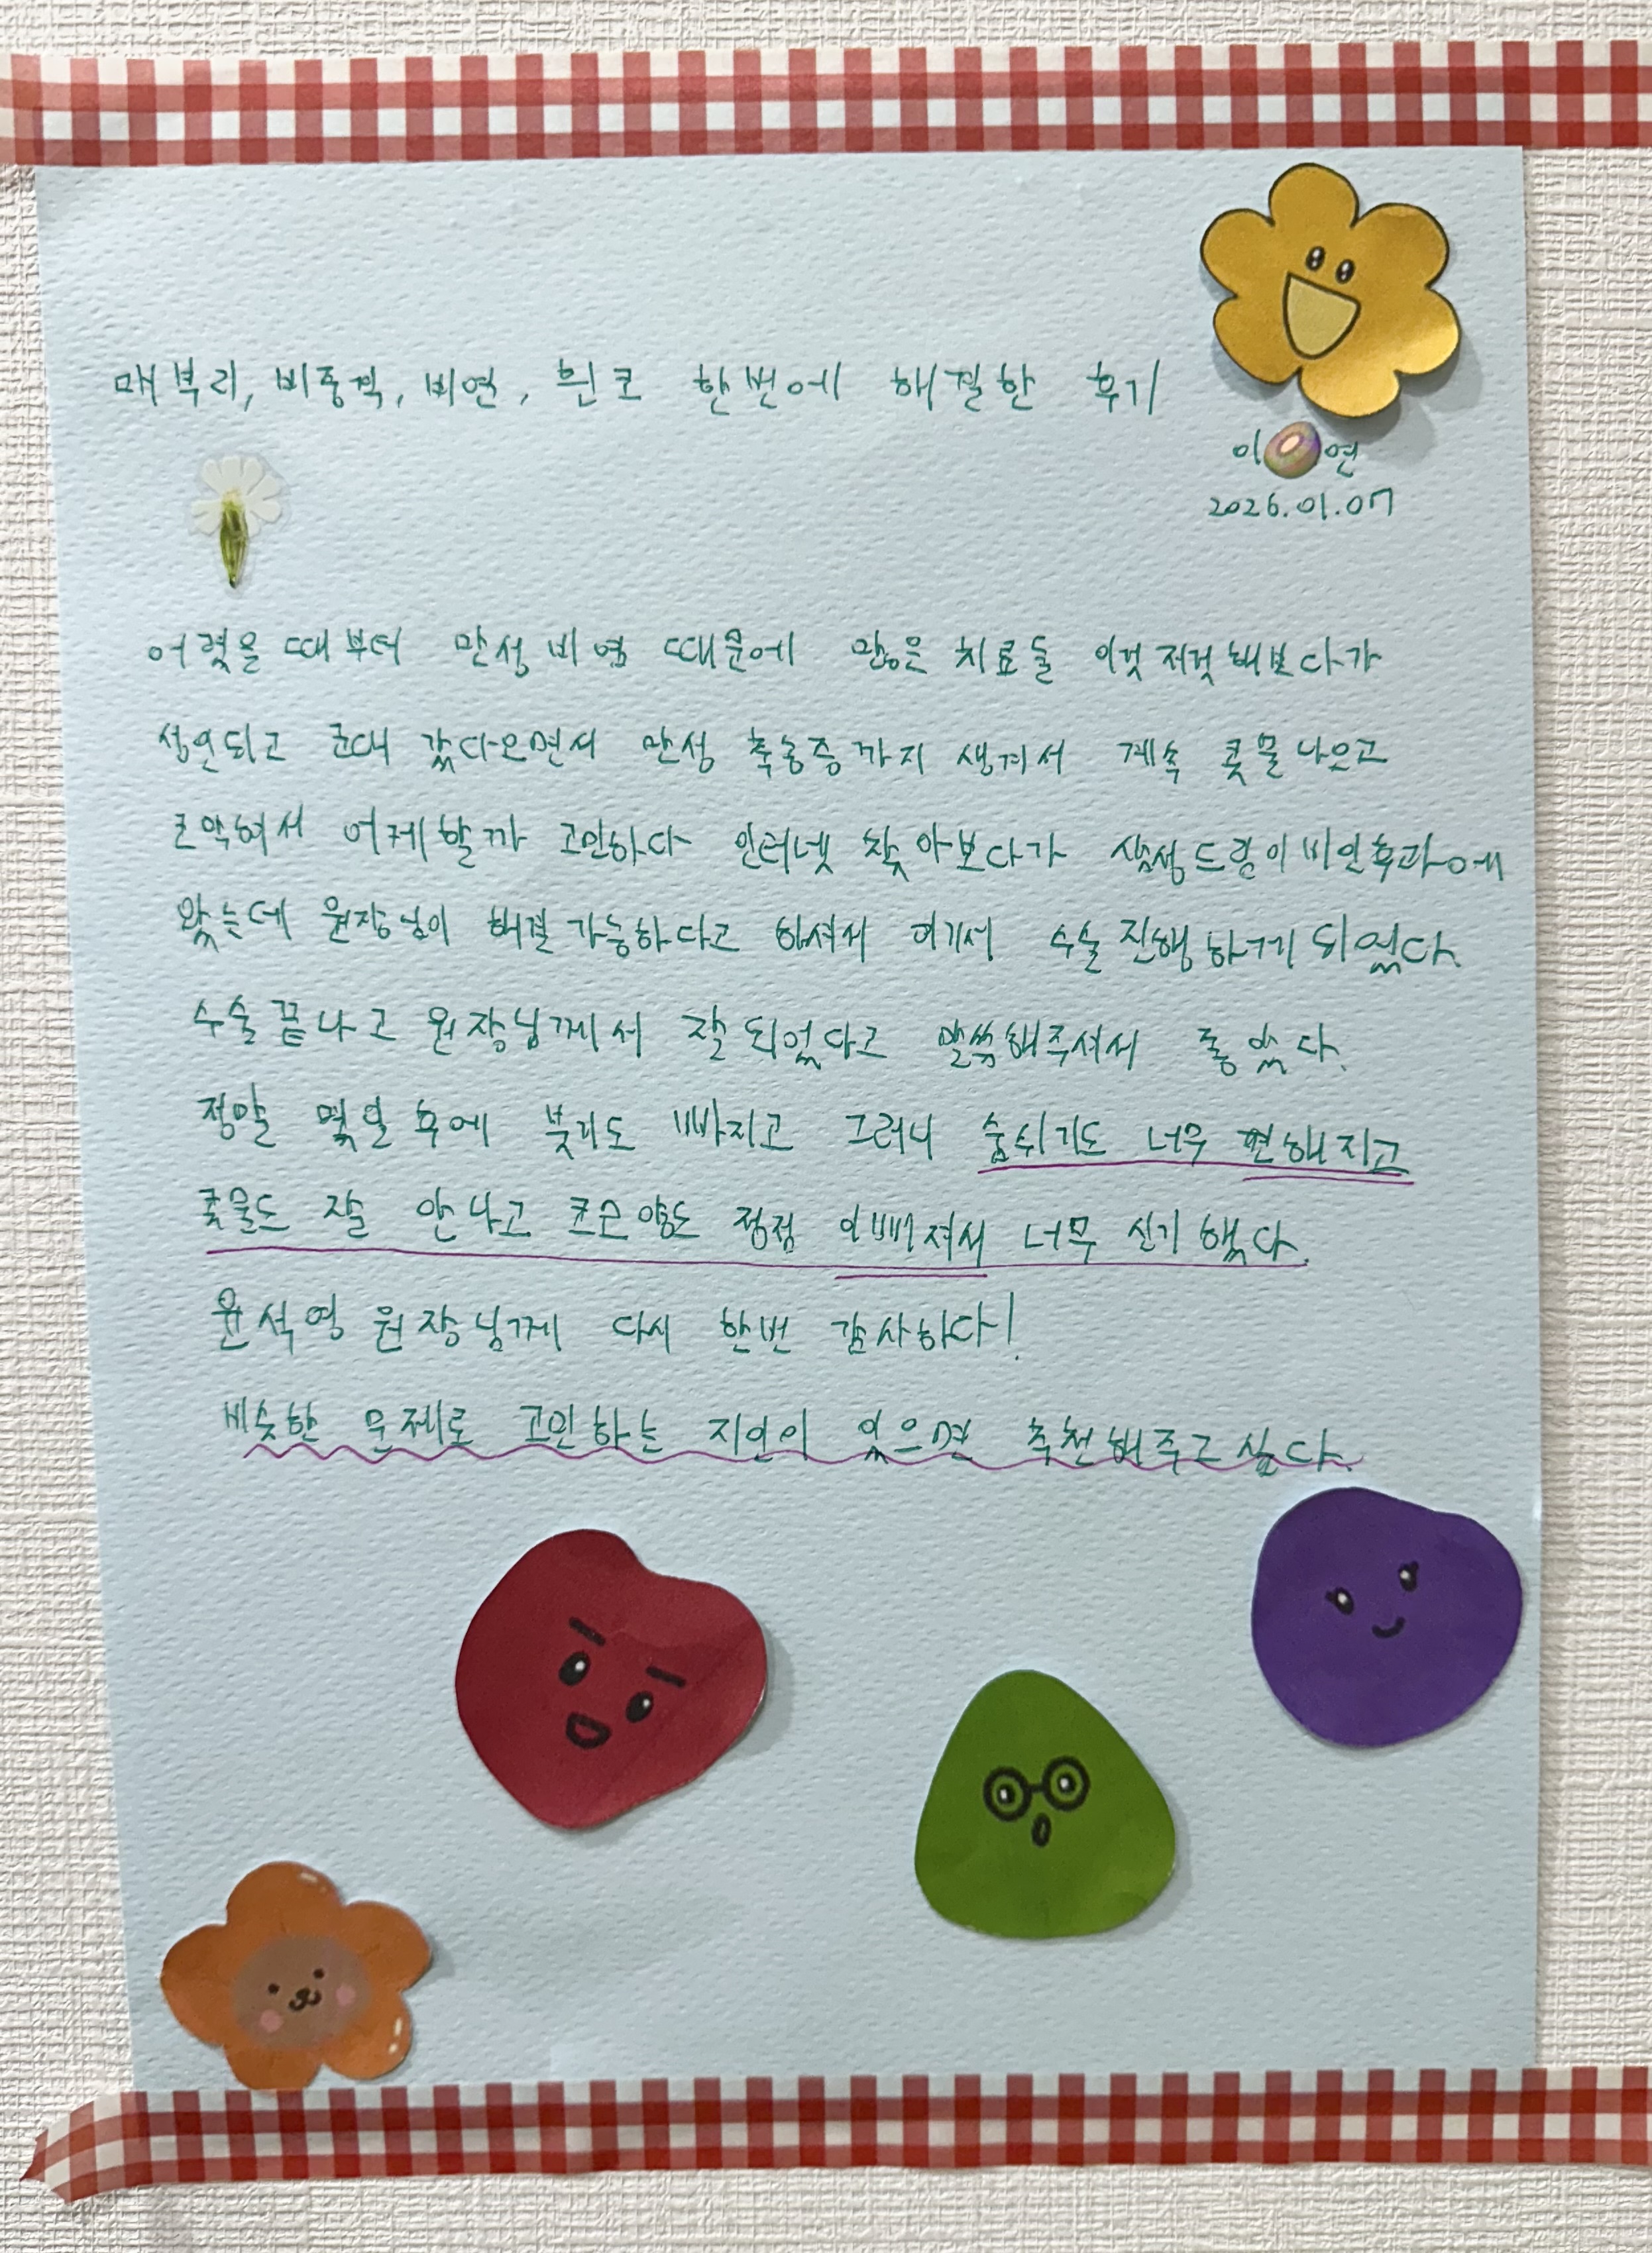 매부리, 비중격, 비염, 휜코 한번에 해결한 후기
이 연
2026.01.07
어렸을 때부터 만성 비염 때문에 많은 치료들 이것저것 해보다가
성인되고 군대 갔다오면서 만성 축농증까지 생겨서 계속 콧물나오고
코막혀서 어케할까 고민하다 인터넷 찾아보다가 삼성드림이비인후과에
왔는데 원장님이 해결가능하다고 하셔서 여기서 수술진행하게 되었다.
수술끝나고 원장님께서 잘되었다고 말씀해주셔서 좋았다.
정말 몇일후에 붓기도 빠지고 그러니 숨쉬기도 너무 편해지고
콧물도 잘 안나고 코모양도 점점 이뻐져서 너무 신기했다.
윤석영원장님께 다시 한번 감사하다!
비슷한 문제로 고민하는 지인이 있으면 추천해주고싶다.